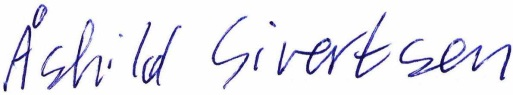 Åshild Sivertsen